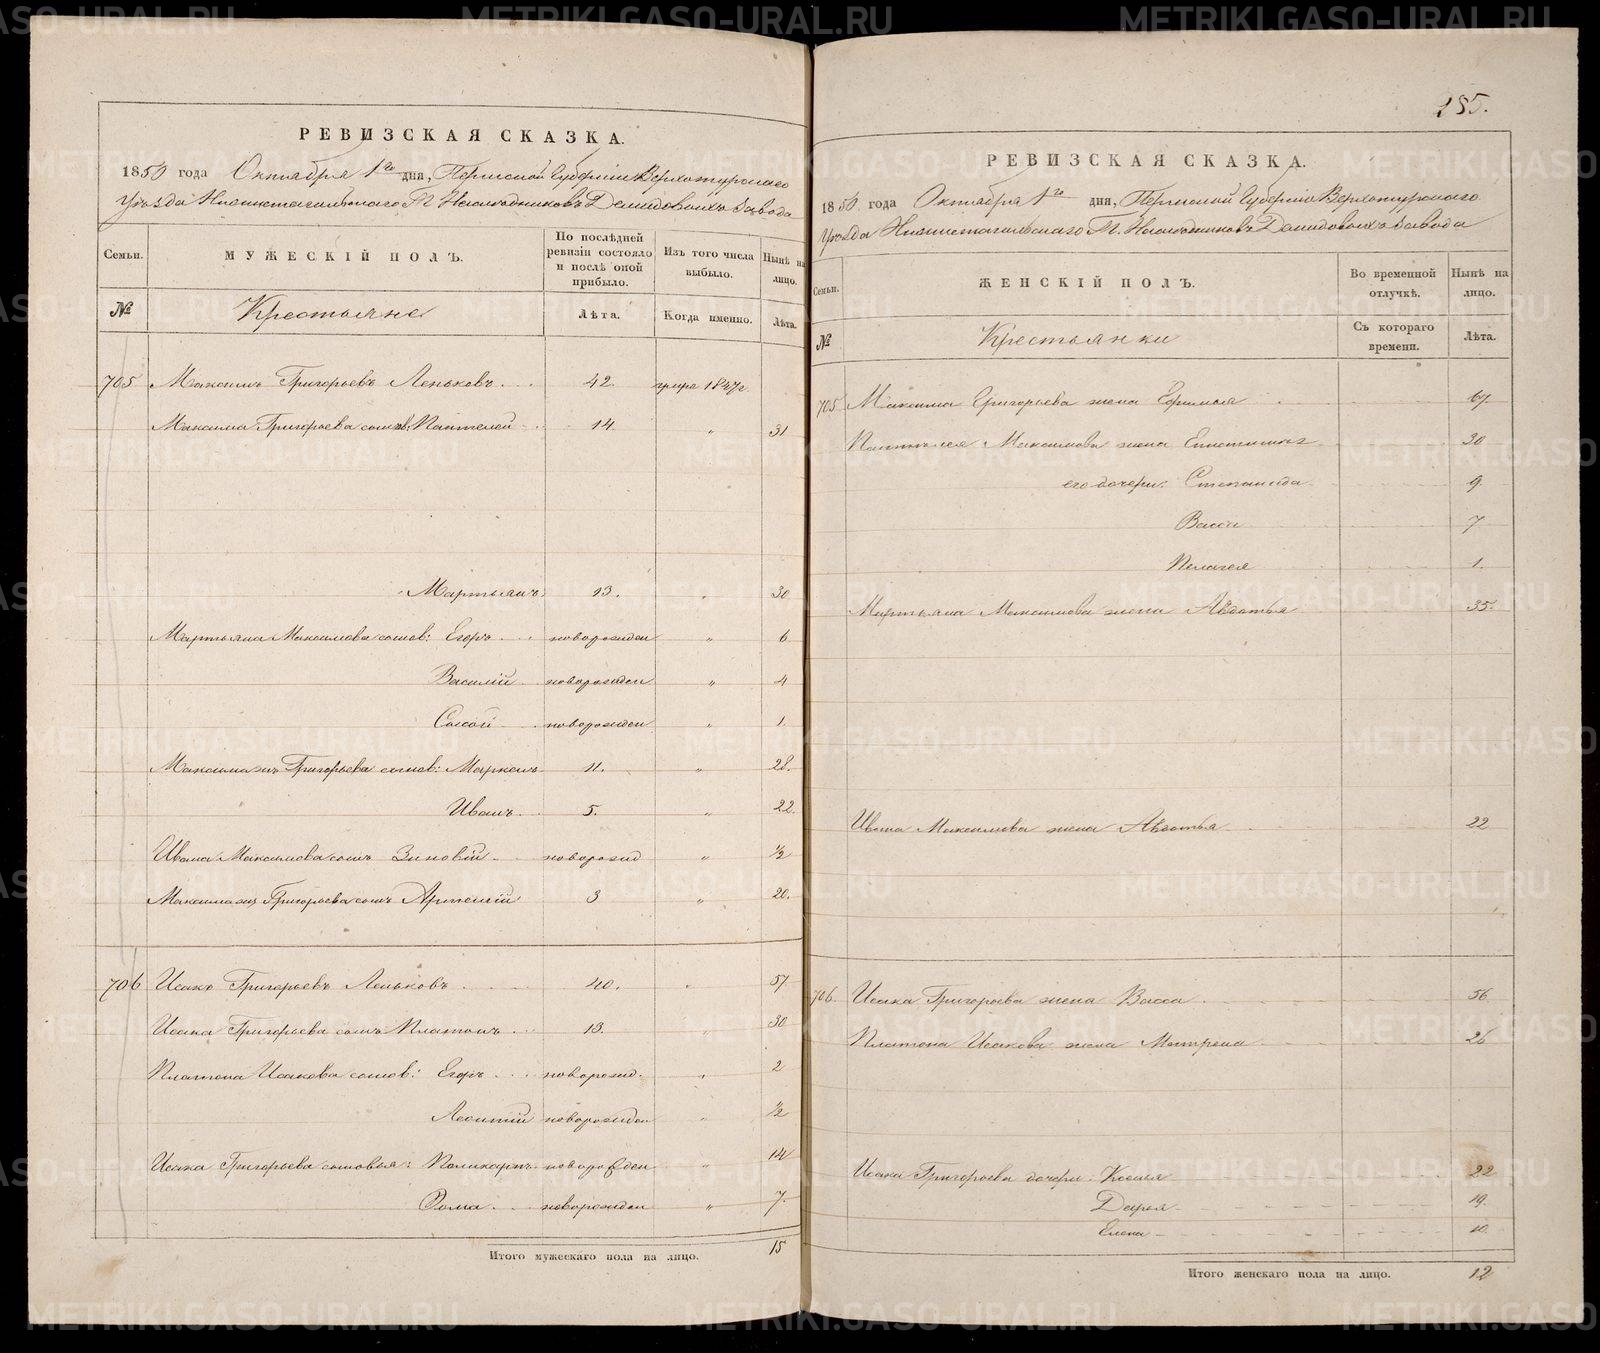 РЕВИЗСКАЯ СКАЗКА.
1850 года Октября 1го дня, Пермской Губернiи Верхотурскаго
Уѣзда Нижнетагильскаго Г. Наследниковъ Демидовыхъ завода
Семьи.
МУЖЕСКIЙ ПОЛЪ.
По послѣдней ревизiи состояло и послѣ оной прибыло.
Изъ того числа выбыло.
Нынѣ на лицо.
№
Крестьяне
Лѣта.
Когда именно.
Лѣта.
705 Максимъ Григорьевъ Леньковъ 42 умре 1847г.
Максима Григорьева сынов: Пантелей 14 " 31
Мартьянъ 13. " 30
Мартьяна Максимова сынов: Егоръ новорожден " 6
Василiй новорожден " 4
Сысой новорожден " 1.
Максима жъ Григорьева сынов: Маркелъ 11. " 28.
Иванъ 5. " 22
Ивана Максимова сынъ Зиновiй новорожд " ½
Максима жъ Григорьева сынъ Артемiй 3 " 20.
706 Исакъ Григорьевъ Леньковъ 40. " 57
Исака Григорьева сынъ Платонъ 13. " 30
Платона Исакова сынов: Егоръ новорожд. " 2
Леонтiй новорожден " ½
Исака Григорьева сыновья: Поликарпъ новорожден " 14
Фома новорожден " 7.
Итого мужескаго пола на лицо. 15
185.
РЕВИЗСКАЯ СКАЗКА.
1850 года Октября 1го дня, Пермской Губернiи Верхотурскаго
Уѣзда Нижнетагильскаго Г. Наследниковъ Демидовыхъ завода
Семьи.
ЖЕНСКIЙ ПОЛЪ.
Во временной отлучкѣ.
Нынѣ на лицо.
№
Крестьянки
Съ котораго времени.
Лѣта.
705 Максима Григорьева жена Ефимья 67.
Пантелея Максимова жена Епистимья 30
его дочери: Степанида 9.
Васса 7
Пелагея 1.
Мартьяна Максимова жена Авдотья 35.
Ивана Максимова жена Авдотья 22
706. Исака Григорьева жена Васса 56
Платона Исакова жена Матрена 26
Исака Григорьева дочери: Ксенья 22
Дарья 19.
Елена 10
Итого женскаго пола на лицо. 12
METRIKI.GASO-URAL.RU